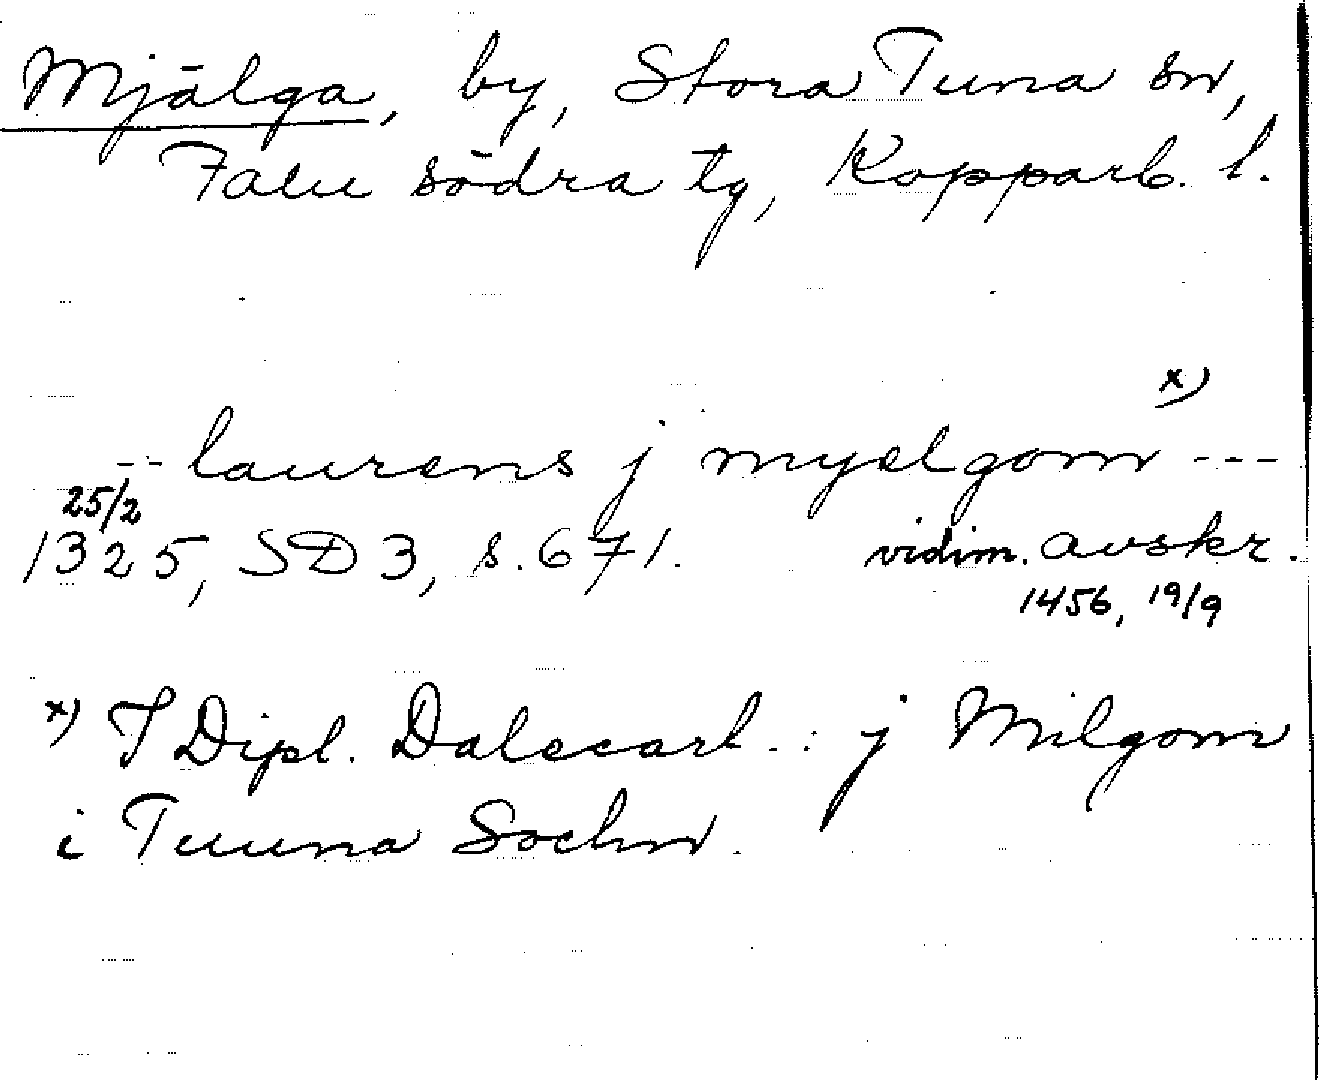 Mjälga, by, Stora Tuna sn,
Falu södra tg, Kopparb. l.
x)
-- laurens j myelgom ---
25/2
1325, SD 3, s. 671. vidim. avskr.
1456, 19/9
x) I Dipl. Dalecarl. : j Milgom
i Tuuna Sochn.